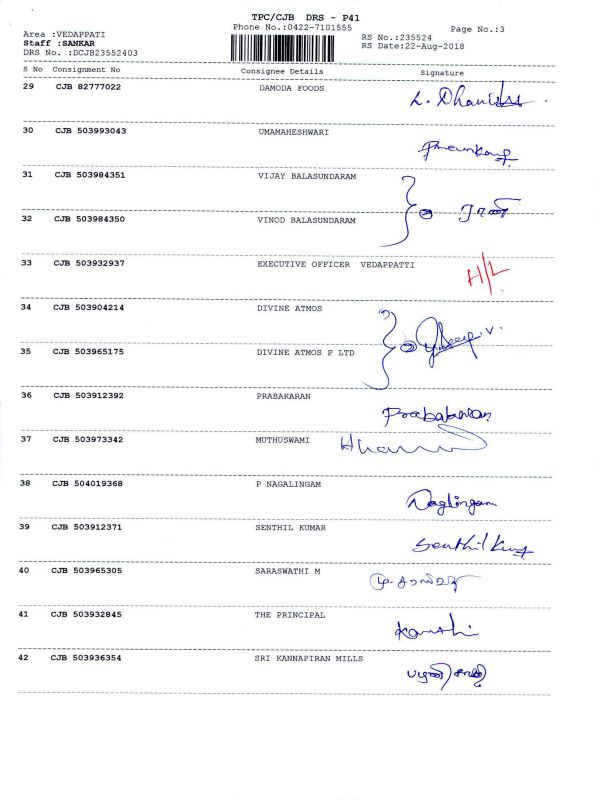 TPC/CJB DRS - P41
Phone No.:0422-7101555
Page No.:3
Area :VEDAPPATI
Staff :SANKAR
DRS No. :DCJB23552403
RS No.:235524
RS Date:22-Aug-2018
S No Consignment No Consignee Details Signature
29 CJB 82777022 DAMODA FOODS
30 CJB 503993043 UMAMAHESHWARI
31 CJB 503984351 VIJAY BALASUNDARAM
32 CJB 503984350 VINOD BALASUNDARAM
33 CJB 503932937 EXECUTIVE OFFICER VEDAPPATTI H/L
34 CJB 503904214 DIVINE ATMOS
35 CJB 503965175 DIVINE ATMOS P LTD
36 CJB 503912392 PRABAKARAN Prabakaran
37 CJB 503973342 MUTHUSWAMI
38 CJB 504019368 P NAGALINGAM Naglingam
39 CJB 503912371 SENTHIL KUMAR Senthil Kumar
40 CJB 503965305 SARASWATHI M
41 CJB 503932845 THE PRINCIPAL
42 CJB 503936354 SRI KANNAPIRAN MILLS